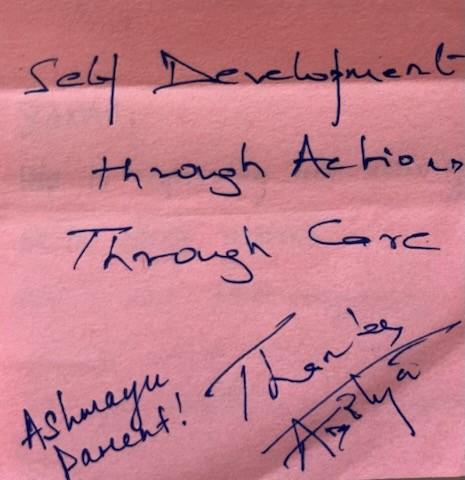 Self Development
through Actions
Through Care
Thanks
Ashmayu
parent!